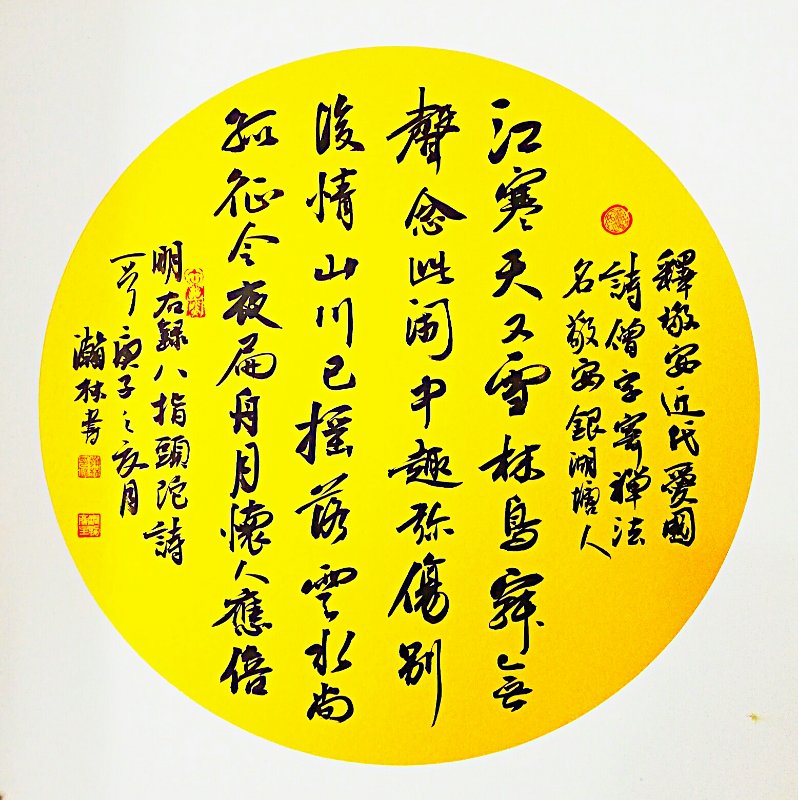 釋敬安近代愛國
詩僧字寄禪法
名敬安銀湖塘人
江寒天又雪林鳥寂無
聲念此閑中趣弥傷別
後情山川已搖落雲水尚
孤征今夜扁舟月懷人應倍
明右録八指頭陀詩
一首庚子之亥月
瀚林書